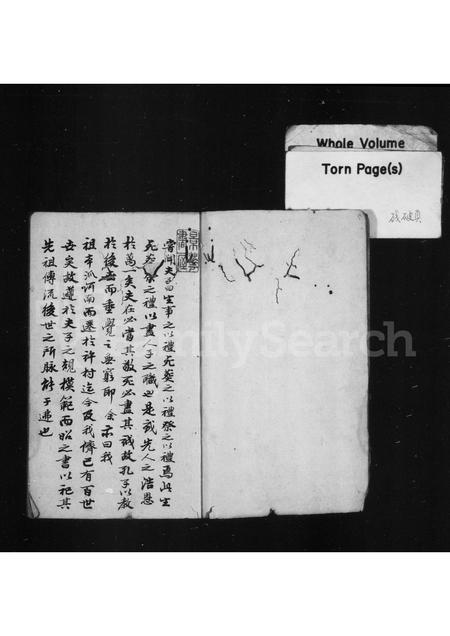 Whole Volume
Torn Page(s)
残破頁
嘗聞夫子曰生事之以禮死葬之以禮祭之以禮焉此生
死葬祭之禮以盡人子之職也是我先人之浩恩
於萬一矣夫在必當其敬死必盡其誠故孔子以教
於後世而垂覺之無窮聊余示曰我
祖本派河南而遷於許村迄今及我儕已有百世
矣哀故遵於夫子之規模範而昭之書以祀其
先祖傳流後世之所脉於于遠也
FamilySearch